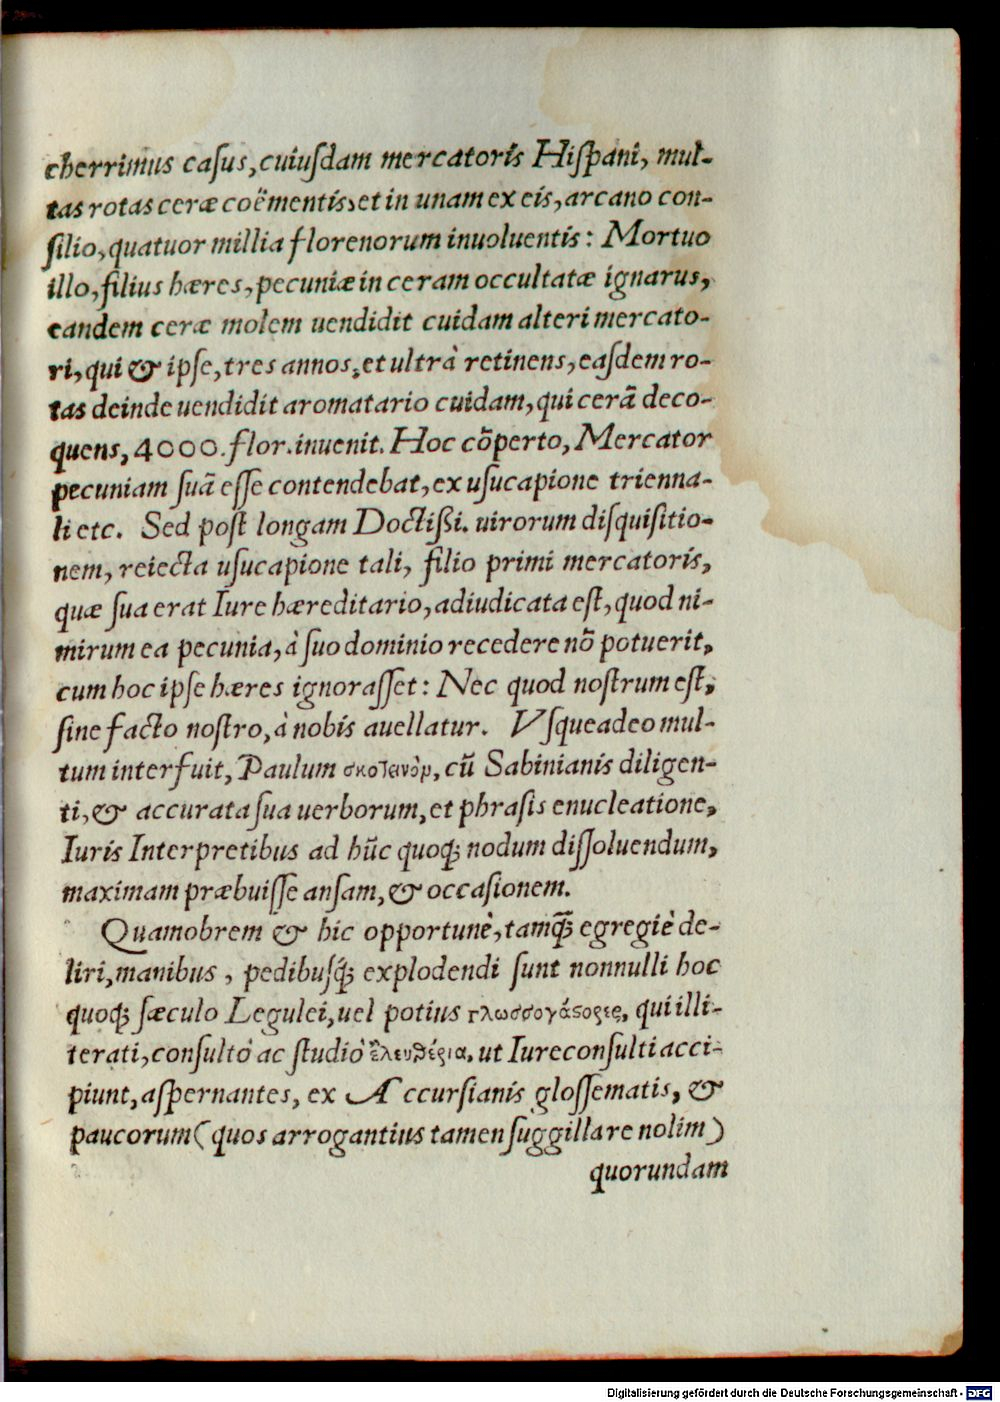 cherrimus caſus, cuiuſdam mercatoris Hiſpani, mul-
tas rotas ceræ coëmentis, et in unam ex eis, arcano con-
ſilio, quatuor millia florenorum inuoluentis: Mortuo
illo, filius hæres, pecuniæ in ceram occultatæ ignarus,
eandem ceræ molem uendidit cuidam alteri mercato-
ri, qui & ipſe, tres annos, et ultrà retinens, eaſdem ro-
tas deinde uendidit aromatario cuidam, qui cerā deco-
quens, 4000. flor. inuenit. Hoc cōperto, Mercator
pecuniam ſuā eſſe contendebat, ex uſucapione trienna-
li etc. Sed poſt longam Doctißi. uirorum diſquiſitio-
nem, reiecta uſucapione tali, filio primi mercatoris,
quæ ſua erat Iure hæreditario, adiudicata eſt, quod ni-
mirum ea pecunia, à ſuo dominio recedere nō potuerit,
cum hoc ipſe hæres ignoraſſet: Nec quod noſtrum eſt,
ſine facto noſtro, à nobis auellatur. Vſqueadeo mul-
tum interfuit, Paulum σκοτεινὸμ, cū Sabinianis diligen-
ti, & accurata ſua uerborum, et phraſis enucleatione,
Iuris Interpretibus ad hūc quoq; nodum diſſoluendum,
maximam præbuiſſe anſam, & occaſionem.
Quamobrem & hic opportunè, tamq̃; egregiè de-
liri, manibus, pedibuſq́; explodendi ſunt nonnulli hoc
quoq; ſæculo Legulei, uel potius γλωσσογάϛορες, qui illi-
terati, conſultò ac ſtudiò ἐλευθέρια, ut Iureconſulti acci-
piunt, aſpernantes, ex Accurſianis gloſſematis, &
paucorum (quos arrogantius tamen ſuggillare nolim)
quorundam
Digitalisierung gefördert durch die Deutsche Forschungsgemeinschaft - DFG